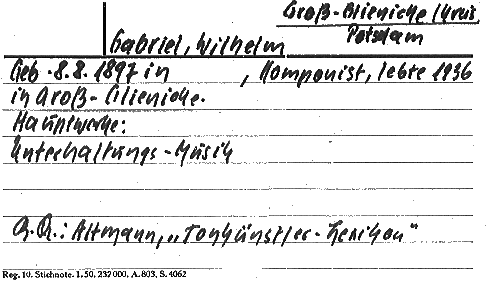 Groß-Glienicke/Kreis
Potsdam
Gabriel, Wilhelm
Geb. 8.8.1897 in , Komponist, lebte 1936
in Groß-Glienicke.
Hauptwerke:
Unterhaltungs-Musik
A.Q.: Altmann, „Tonkünstler-Lexikon"
Reg. 10. Stichnote. 1.50, 232 000, A. 803, S. 4062